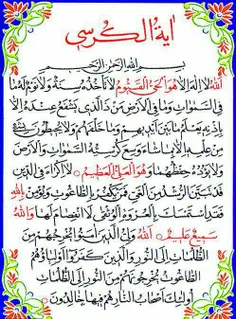 اية الكرسي
بسم الله الرحمن الرحيم
الله لا اله الا هو الحي القيوم لا تأخذه سنة ولا نوم له ما
في السموات وما في الارض من ذا الذي يشفع عنده الا
باذنه يعلم ما بين ايديهم وما خلفهم ولا يحيطون بشيء
من علمه الا بما شاء وسع كرسيه السموات والارض
ولا يؤده حفظهما وهو العلي العظيم لا اكراه في الدين
قد تبين الرشد من الغي فمن يكفر بالطاغوت ويؤمن بالله
فقد استمسك بالعروة الوثقى لا انفصام لها والله
سميع عليم الله ولي الذين آمنوا يخرجهم من
الظلمات الى النور والذين كفروا اولياؤهم
الطاغوت يخرجونهم من النور الى الظلمات
اولئك اصحاب النار هم فيها خالدون